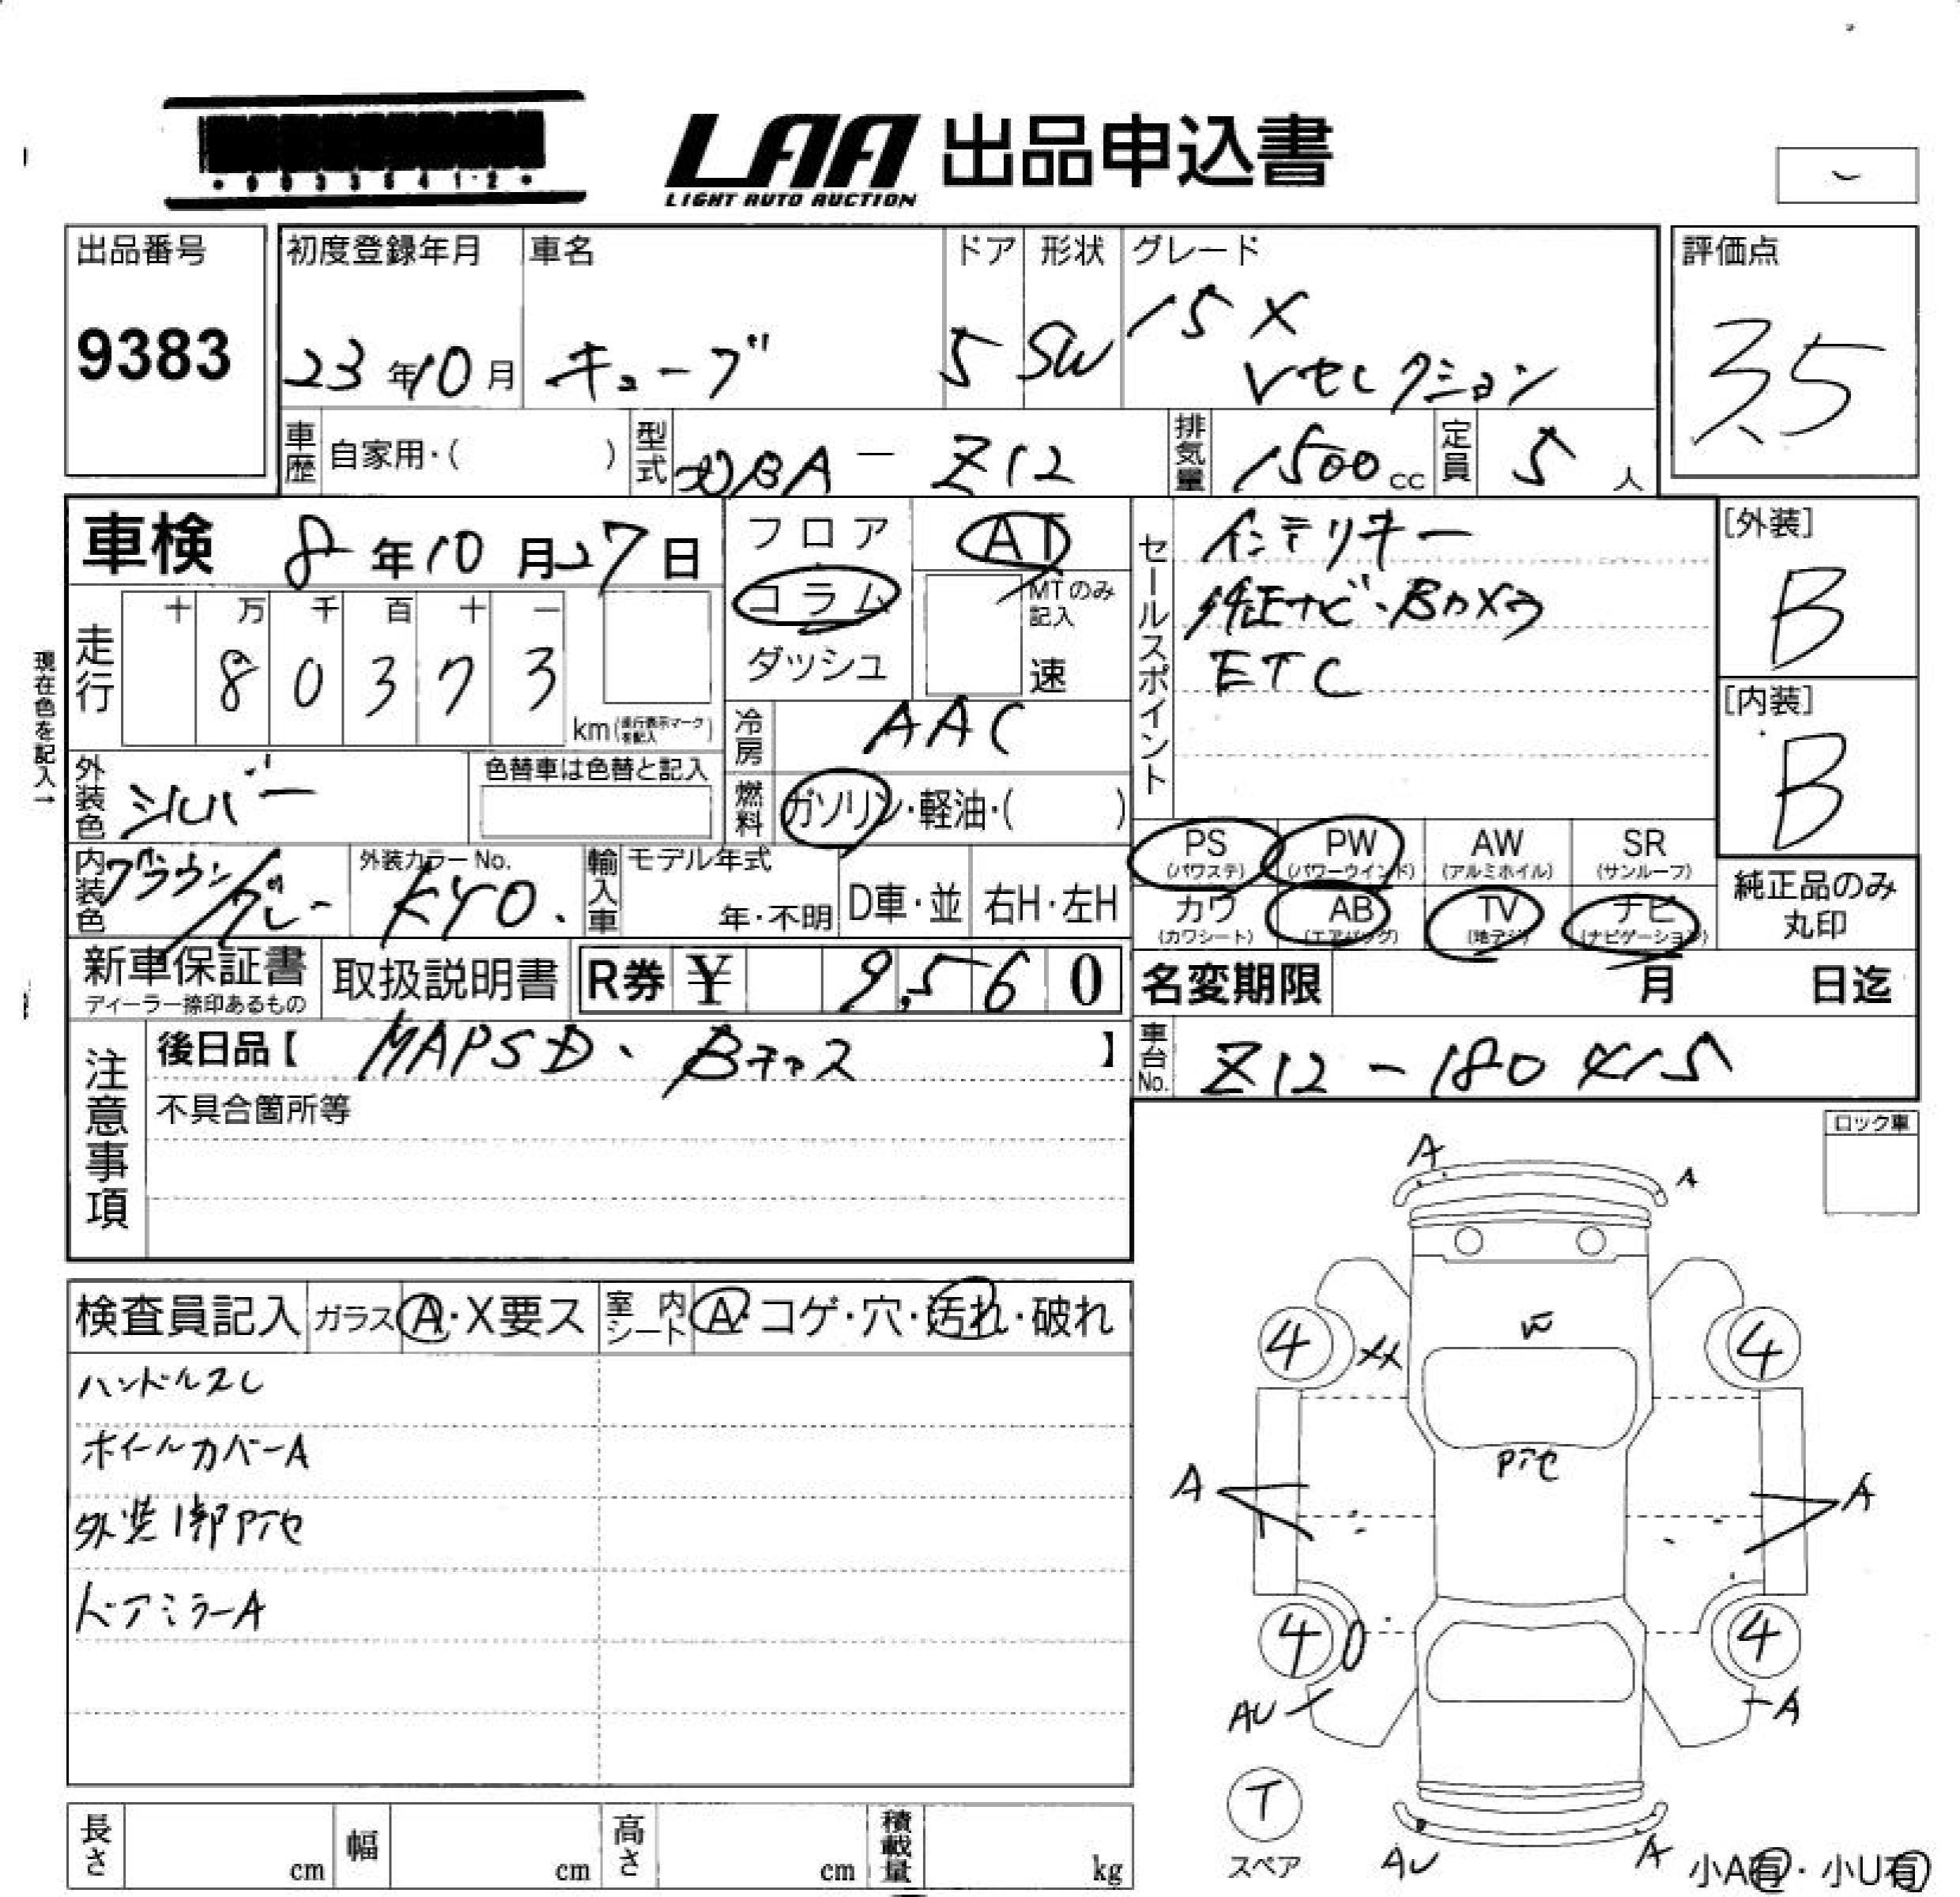 LAA 出品申込書
LIGHT AUTO AUCTION
出品番号
9383
初度登録年月
23年10月
車名
キューブ
ドア
5
形状
SW
グレード
15X
Vセレクション
評価点
3.5
車歴
自家用・( )
型式
DBA－Z12
排気量
1500cc
定員
5人
車検 8年10月27日
フロア
コラム
ダッシュ
AT
MTのみ記入
速
セールスポイント
インテリキー
純正ナビ・Bカメラ
ETC
[外装]
B
[内装]
B
現在色を記入→
走行
十 万 千 百 十 一
8 0 3 7 3
km(走行表示マークを記入)
冷房
AAC
外装色
シルバー
色替車は色替と記入
燃料
ガソリン・軽油・( )
内装色
ブラウン/グレー
外装カラーNo.
KY0.
輸入車
モデル年式
年・不明
D車・並
右H・左H
PS
(パワステ)
PW
(パワーウインド)
AW
(アルミホイル)
SR
(サンルーフ)
カワ
(カワシート)
AB
(エアバッグ)
TV
(地デジ)
ナビ
(ナビゲーション)
純正品のみ
丸印
新車保証書
ディーラー捺印あるもの
取扱説明書
R券 ¥ 9,560
名変期限 月 日迄
注意事項
後日品【 MAPSD、Bキャス 】
不具合箇所等
車台No.
Z12－180415
ロック車
検査員記入
ガラス A・X要ス
室内シート A・コゲ・穴・汚れ・破れ
ハンドルスレ
ホイールカバーA
外装1部Pアセ
ドアミラーA
A
A
W
4
XX
4
Pアセ
A
A
4
4
AU
A
T
スペア
AU
A
小A有・小U有
長さ cm
幅 cm
高さ cm
積載量 kg